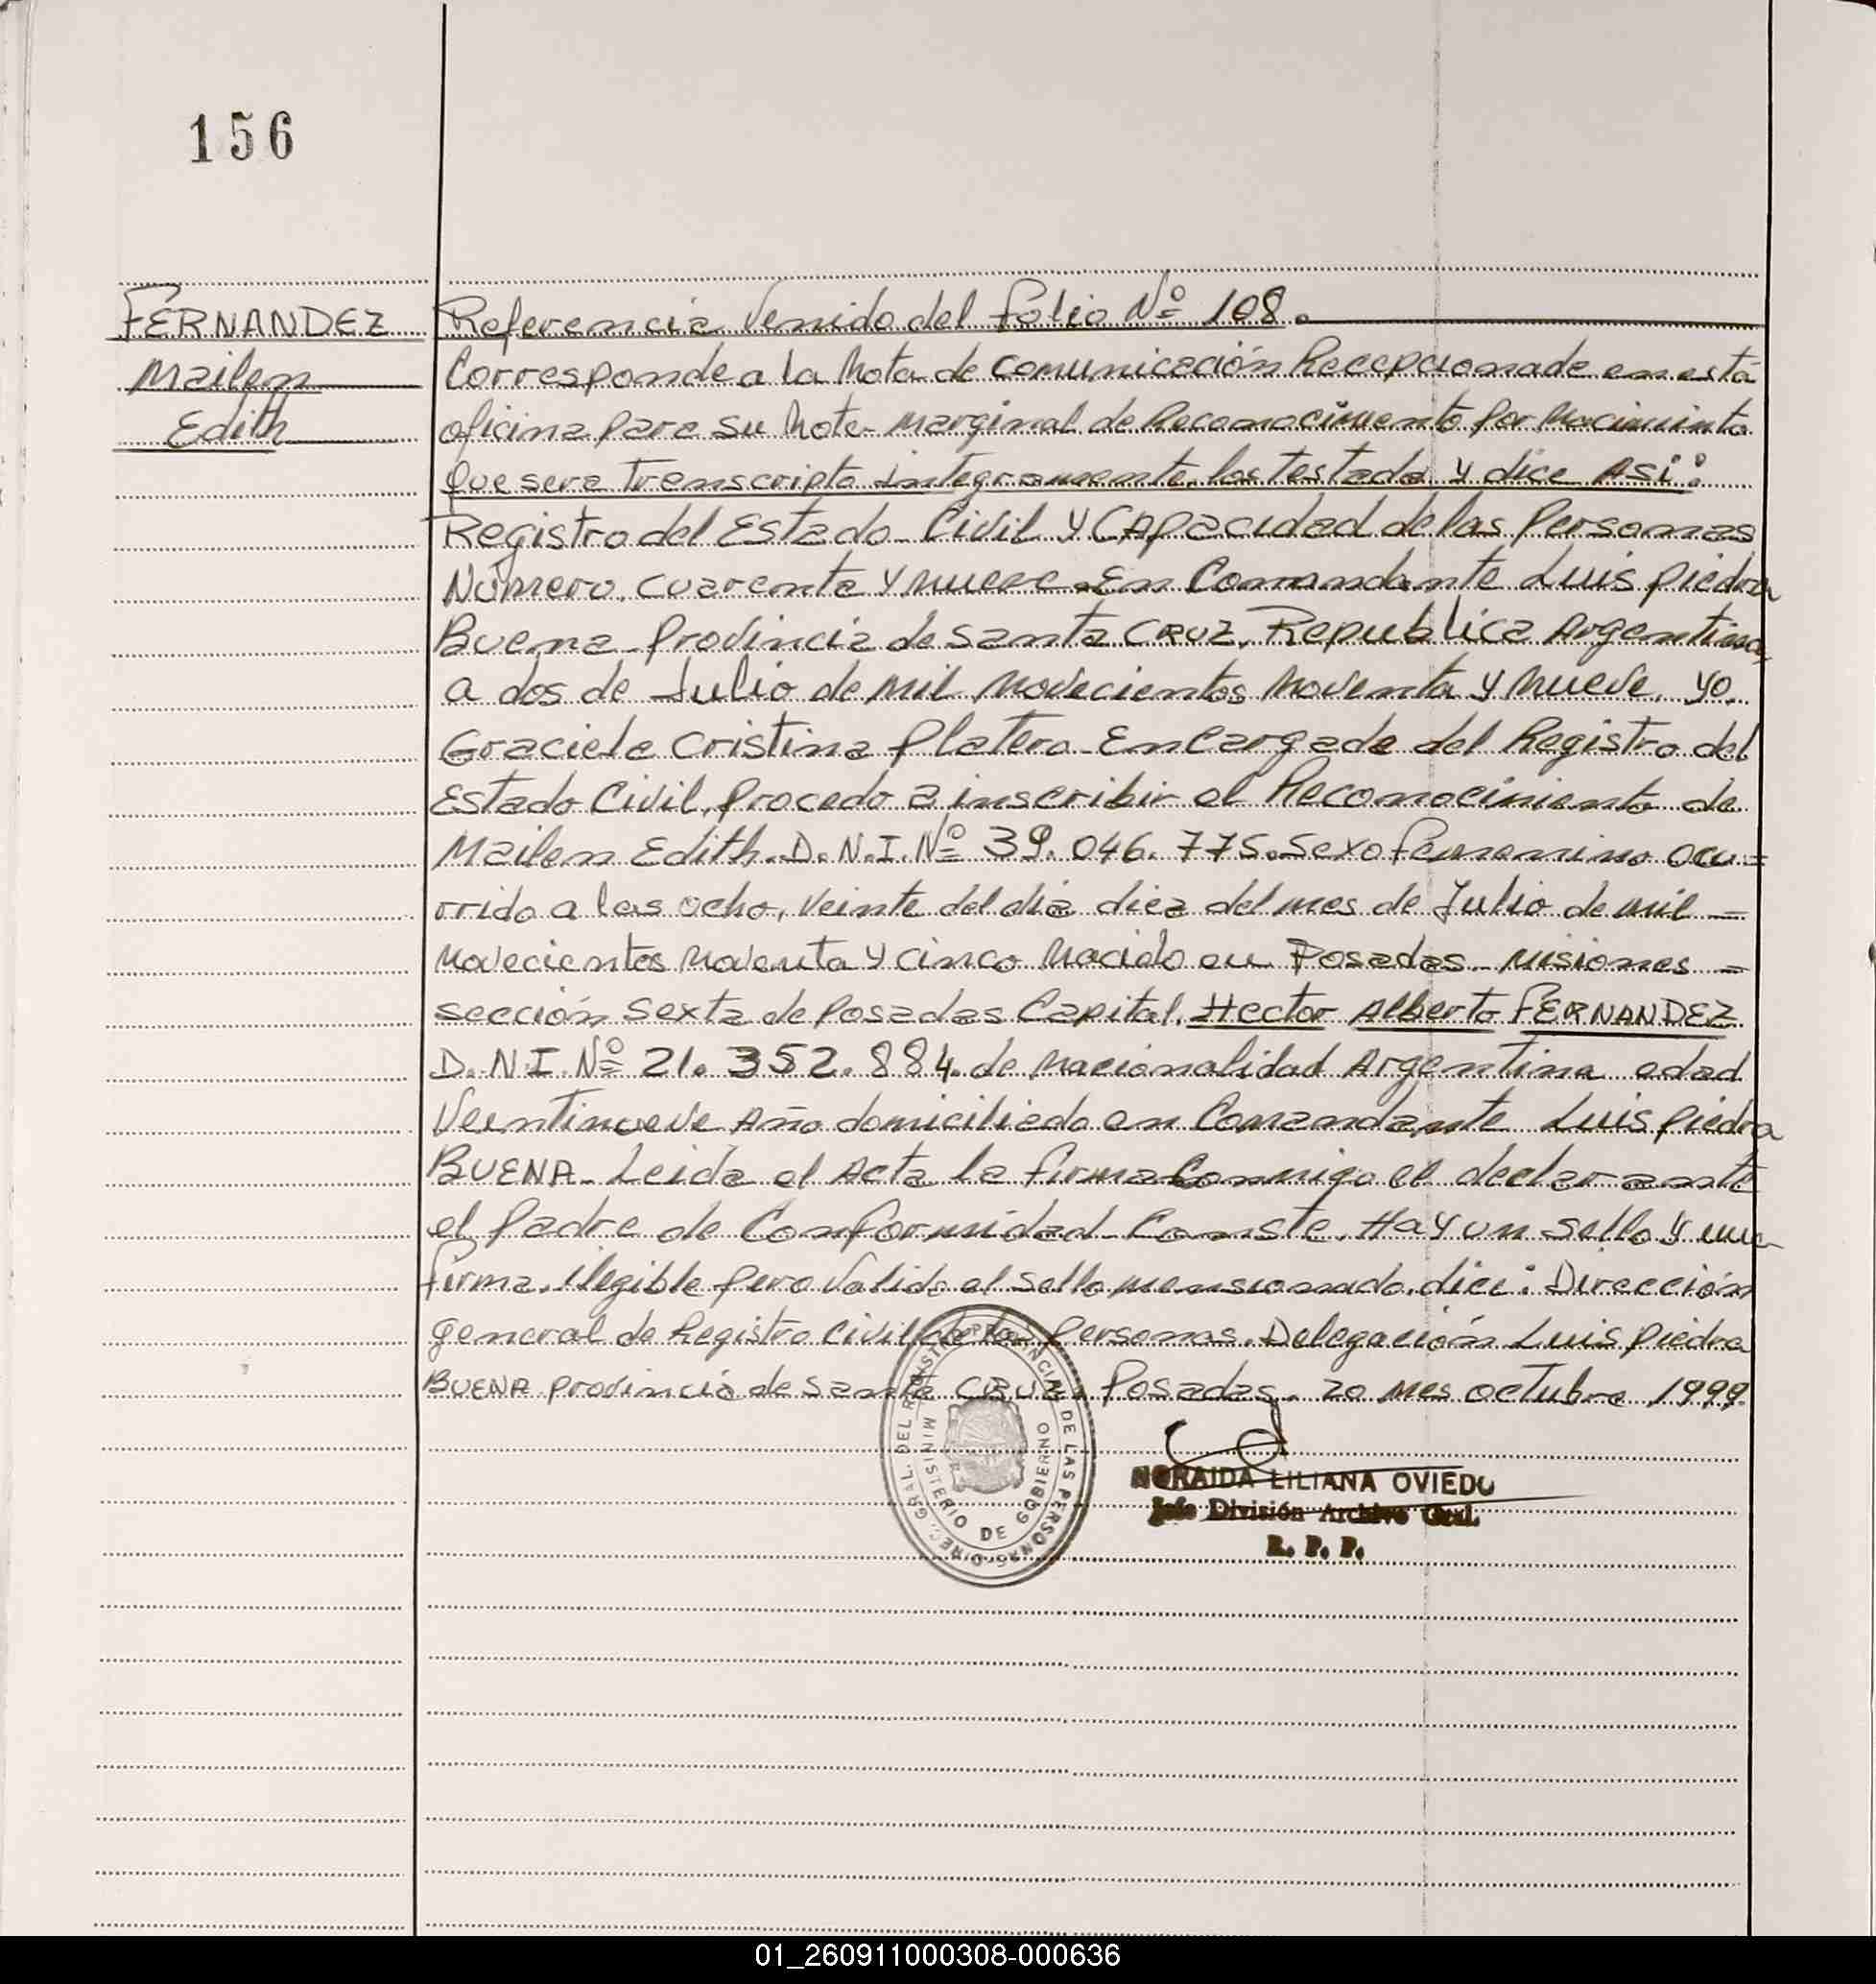 156
FERNANDEZ
Mailen
Edith
Referencia Venido del folio Nº 108.
Corresponde a la Nota de comunicación Recepcionada en está
oficina para su Nota marginal de Reconocimiento por Nacimiento
Que sera Transcripto integramente los testado y dice Asi:
Registro del Estado Civil y CApacidad de las Personas
Número cuarenta y nueve. En Comandante Luis piedra
Buena Provincia de Santa CRUZ, Republica Argentina,
a dos de Julio de mil Novecientos Noventa y Nueve, yo
Graciela Cristina Platero Encargada del Registro del
Estado Civil, procedo a inscribir el Reconocimiento de
Mailen Edith. D.N.I. Nº 39.046.775. Sexo femenino ocu=
rrido a las ocho, Veinte del dia diez del mes de Julio de mil =
Novecientos Noventa y cinco Nacido en Posadas Misiones =
sección Sexta de Posadas Capital. Hector Alberto FERNANDEZ
D.N.I. Nº 21.352.884. de Nacionalidad Argentina edad
Veintinueve Año domiciliado en Comandante Luis piedra
BUENA. Leida el Acta la firma Conmigo el declarante
el Padre de Conformidad Conste. Hay un sello y una
firma, ilegible pero Valido el sello mensionado, dice: Dirección
General de Registro Civil de las Personas. Delegación Luis piedra
BUENA provincia de Santa CRUZ. Posadas, 20 mes octubre 1999.
NORAIDA LILIANA OVIEDO
Jefe División Archivo Gral.
R. P. P.
DIRE. GRAL. DEL REGISTRO PROVINCIAL DE LAS PERSONAS
MINISTERIO DE GOBIERNO
01_260911000308-000636